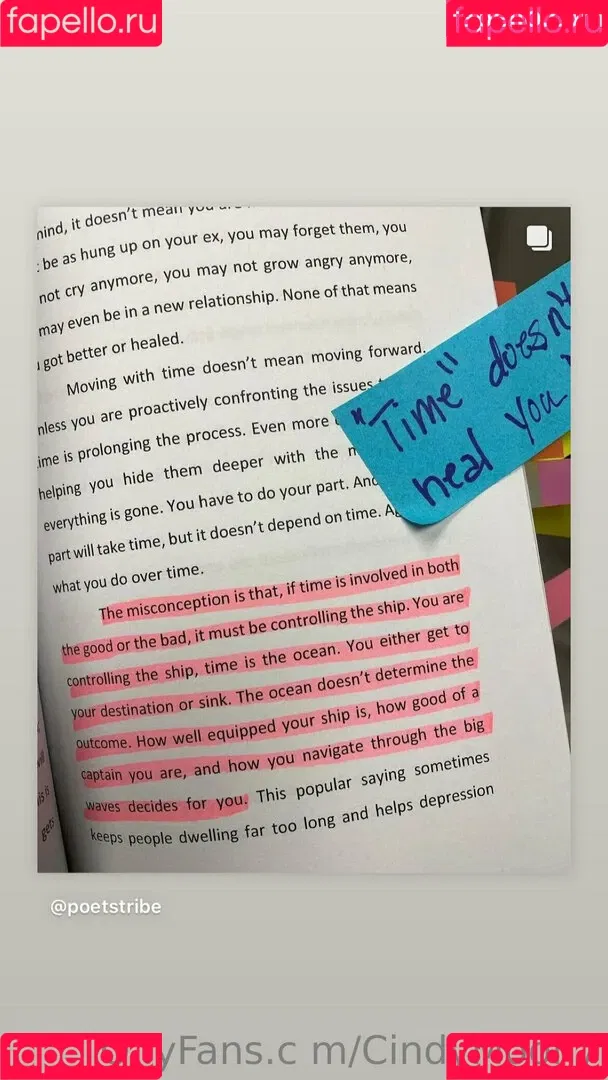 fapello.ru fapello.ru
it doesn't mean you
be as hung up on your ex, you may forget them, you
not cry anymore, you may not grow angry anymore,
may even be in a new relationship. None of that means
got better or healed.
Moving with time doesn't mean moving forward.
you are proactively confronting the issues
is prolonging the process. Even more
helping you hide them deeper with the
everything is gone. You have to do your part. And
part will take time, but it doesn't depend on time.
what you do over time.
"Time" doesn't
heal you
The misconception is that, if time is involved in both
the good or the bad, it must be controlling the ship. You are
controlling the ship, time is the ocean. You either get to
your destination or sink. The ocean doesn't determine the
outcome. How well equipped your ship is, how good of a
captain you are, and how you navigate through the big
waves decides for you. This popular saying sometimes
keeps people dwelling far too long and helps depression
gets
@poetstribe
fapello.ru fapello.ru